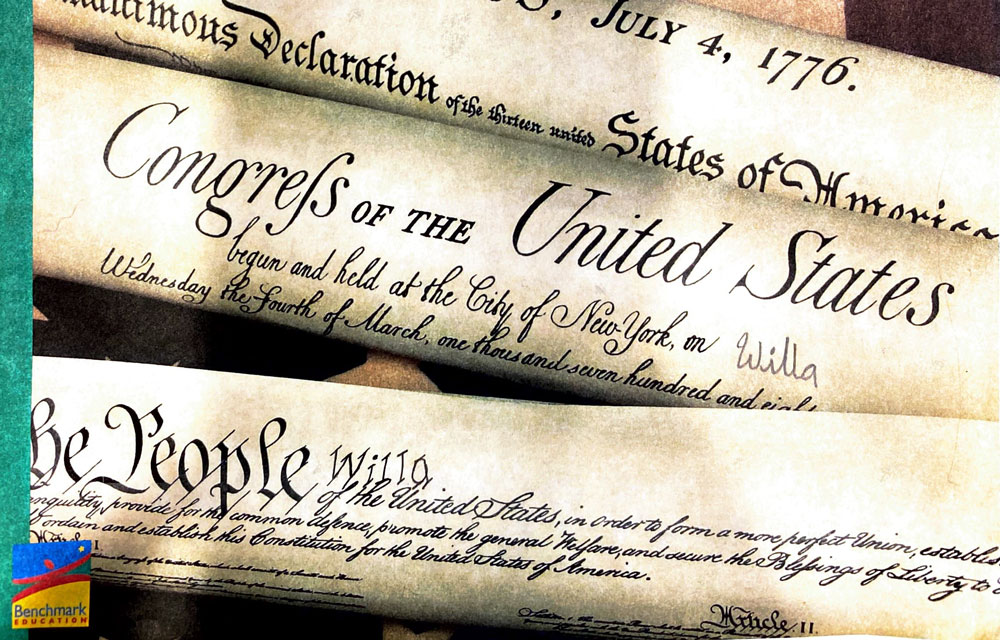 July 4, 1776.
Declaration of the thirteen united States of America
Congreſs OF THE United States
begun and held at the City of New-York, on
Willa
Wednesday the Fourth of March, one thousand seven hundred and
he People Willa
of the United States, in order to form a more perfect Union,
provide for the common defence, promote the general Welfare, and secure the Blessings of Liberty to
ordain and establish this Constitution for the United States of America.
I.
Article II
Benchmark
EDUCATION